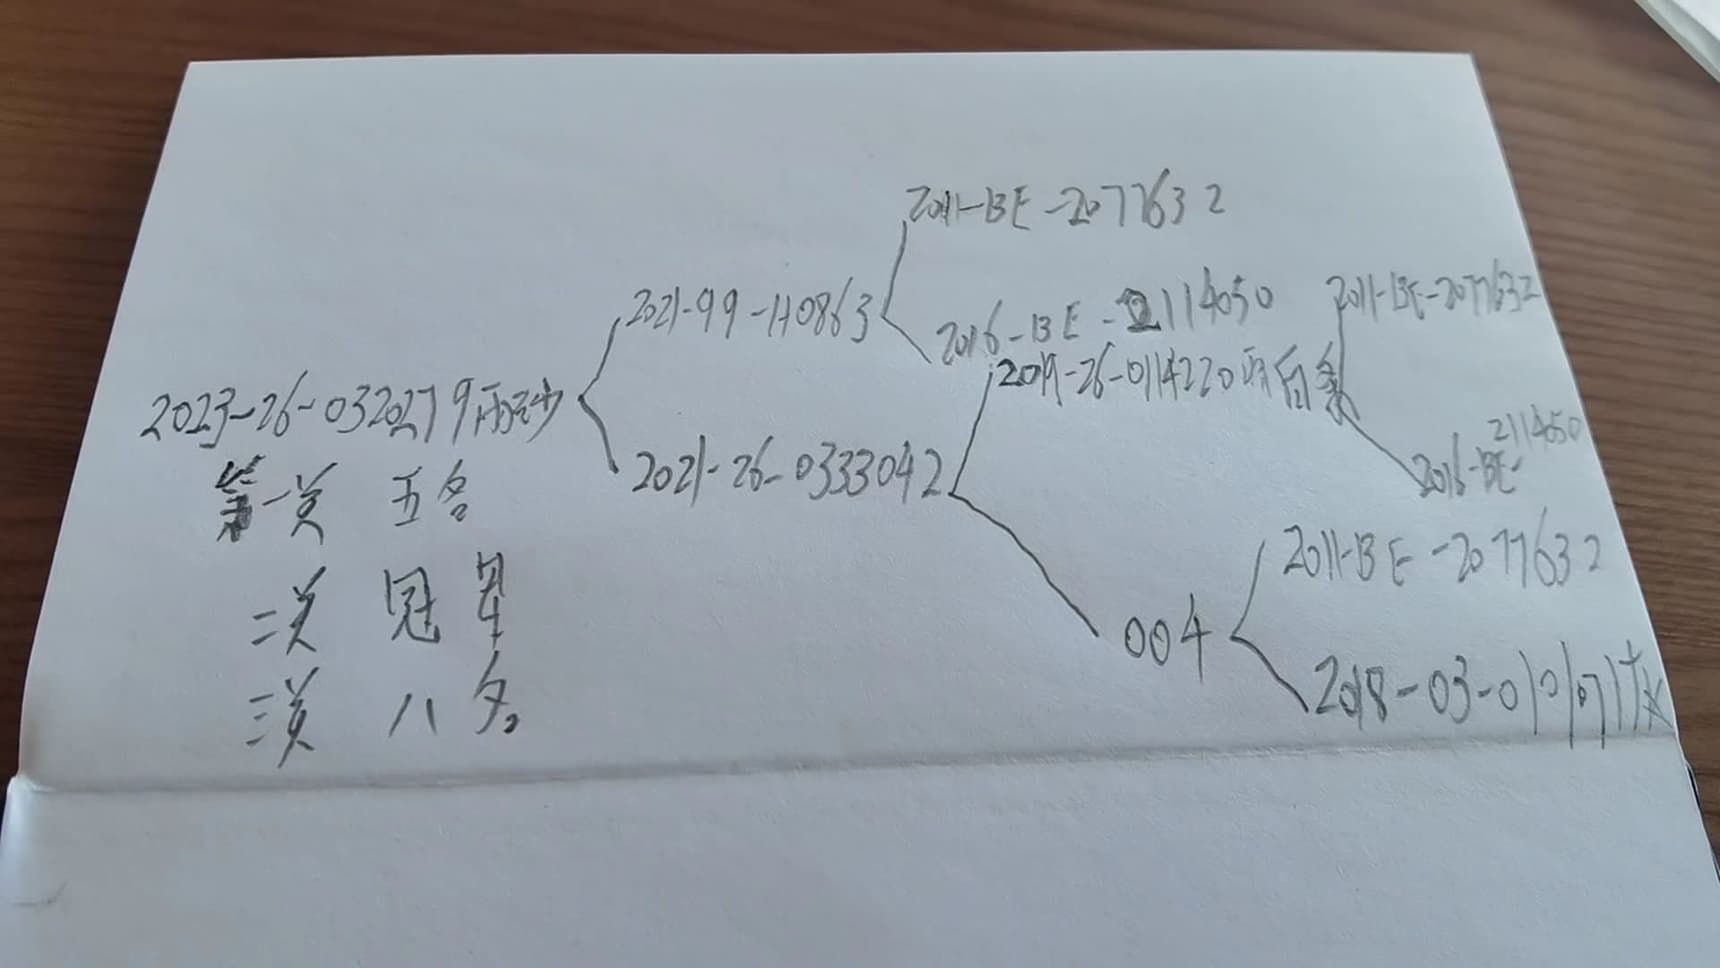 2011-BE-2077632
2021-99-110863
2016-BE-2114050
2011-BE-2077632
2023-26-0320279雨砂
2019-26-0114220雨白条
2021-26-0333042
2016-BE-2114050
第一关 五名
2011-BE-2077632
二关 冠军
004
三关 八名
2018-03-0101071